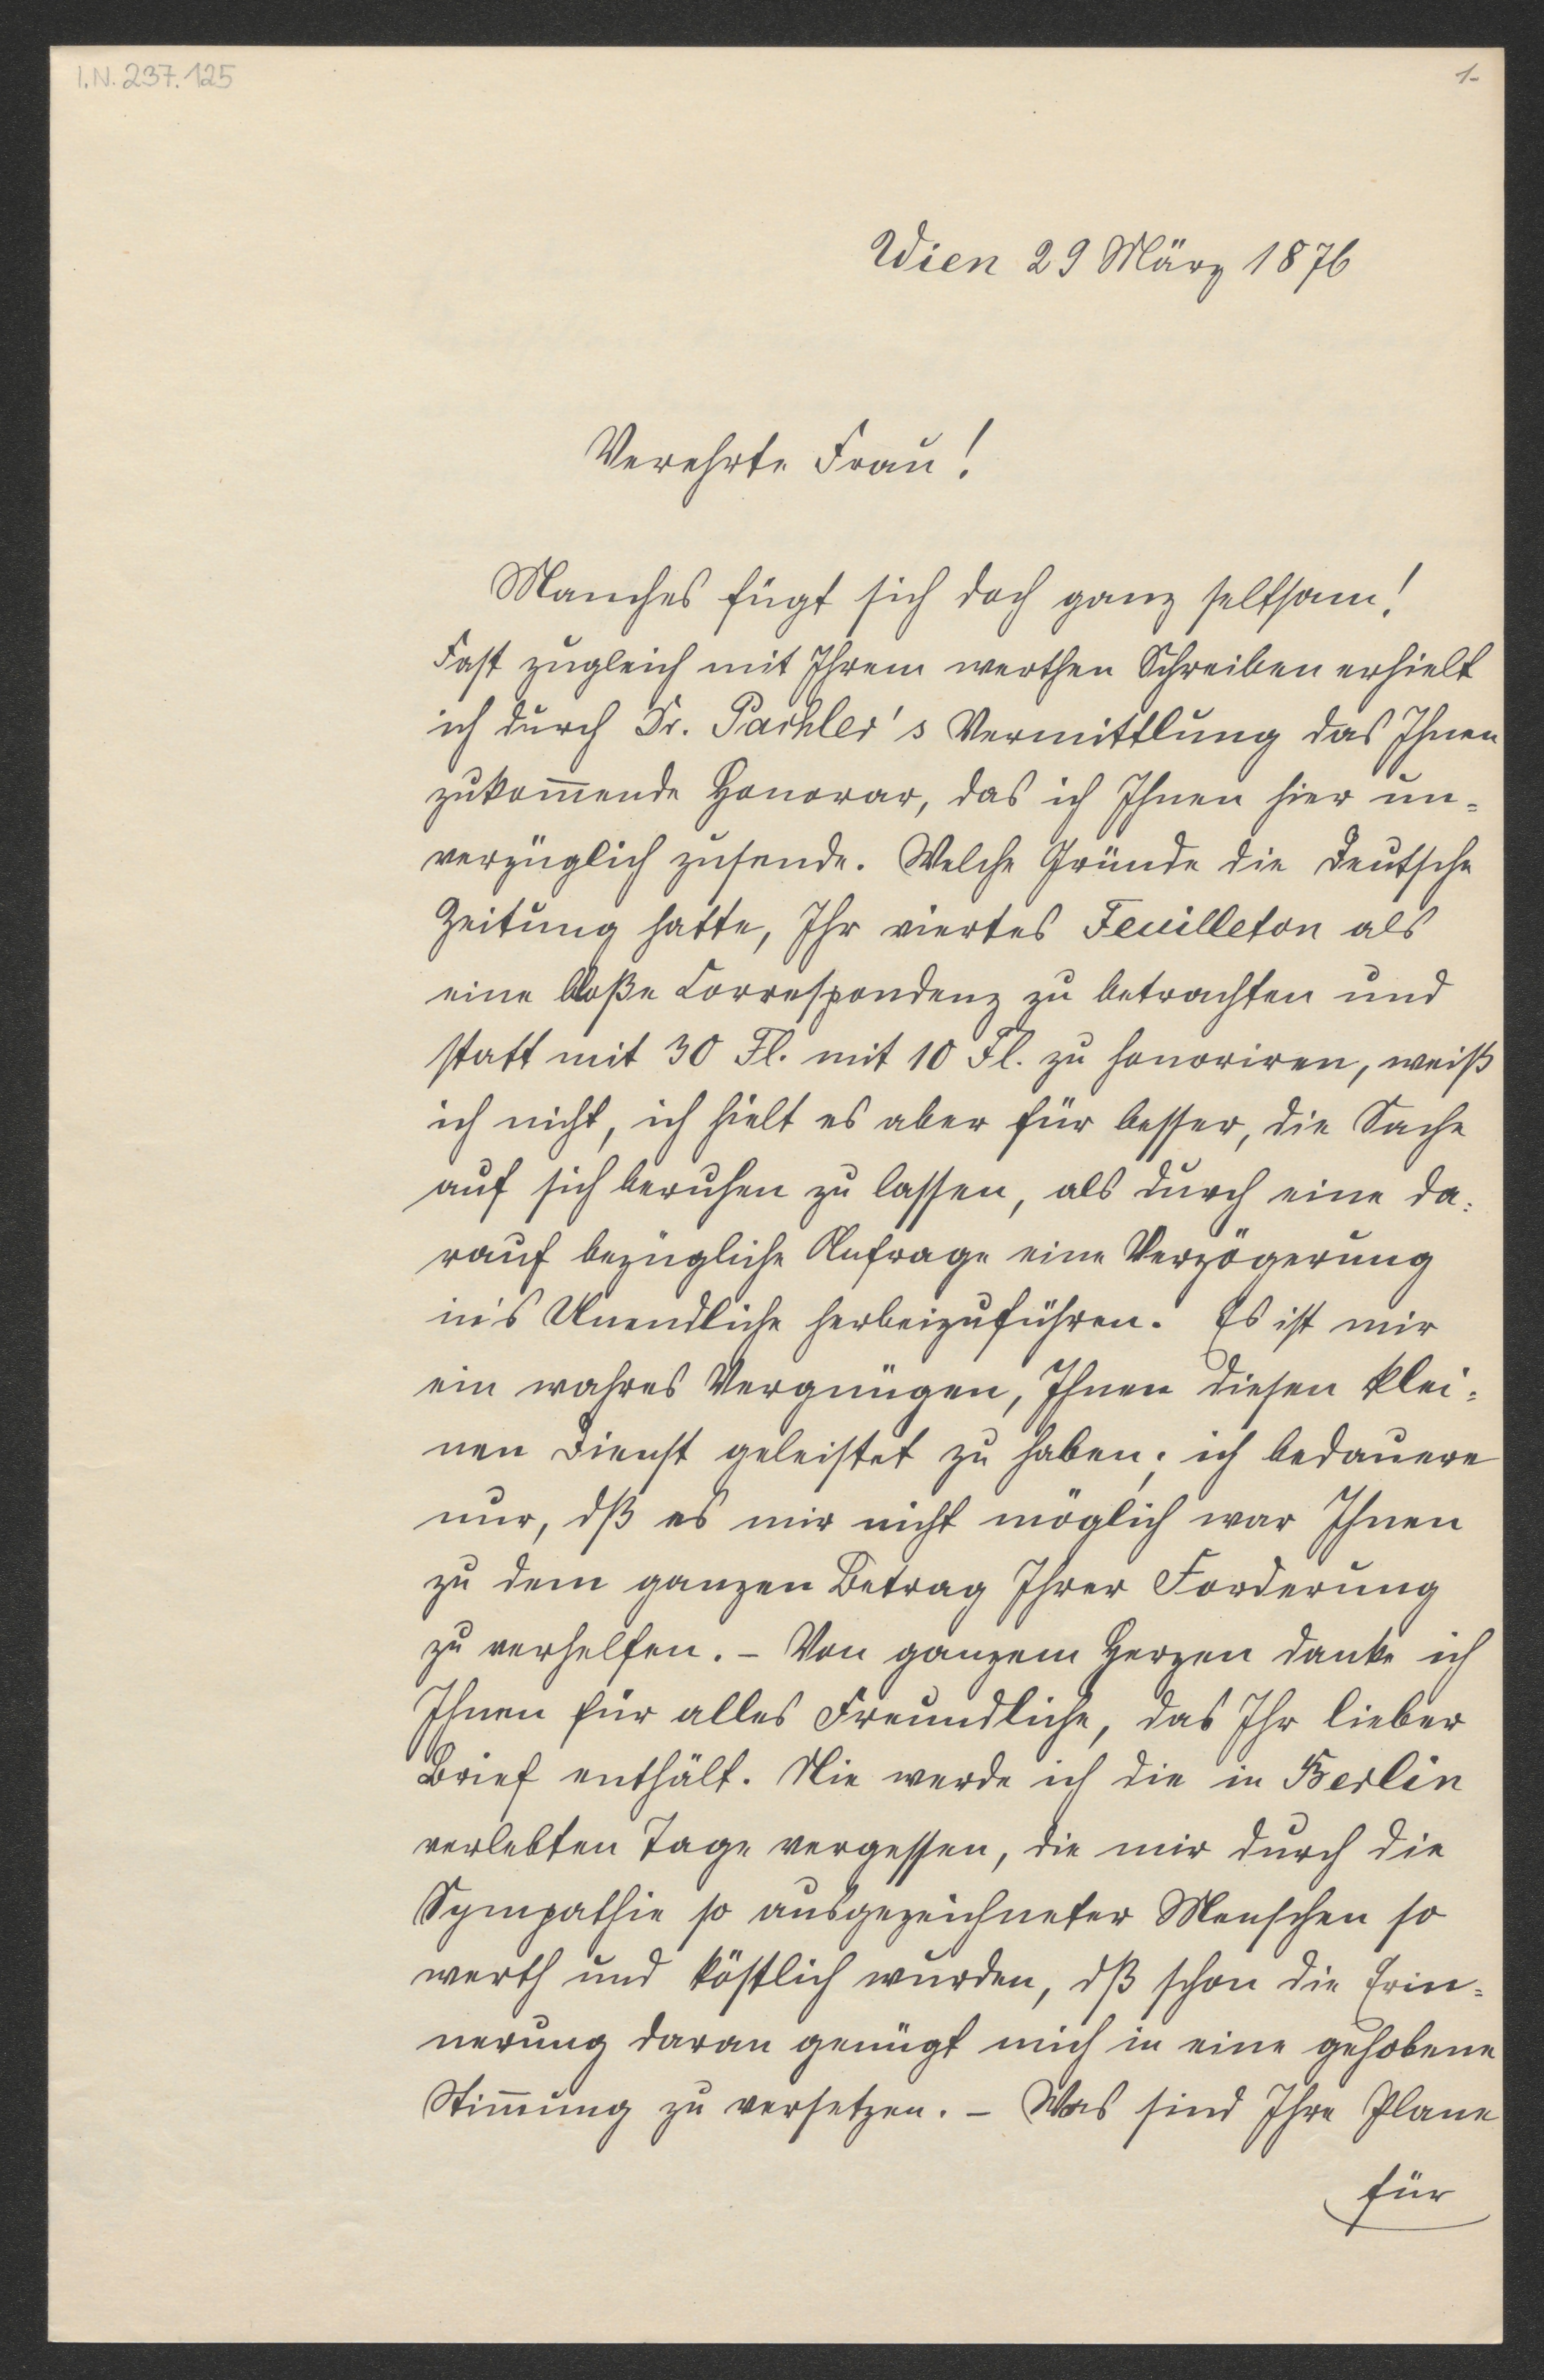 I.N. 237.125
1-
Wien 29 März 1876
Verehrte Frau!
Manches fügt sich doch ganz seltsam!
Fast zugleich mit Ihrem werthen Schreiben erhielt
ich durch Dr. Pachler's Vermittlung das Ihnen
zukom̄ende Honorar, das ich Ihnen hier un=
verzüglich zusende. Welche Gründe die Deutsche
Zeitung hatte, Ihr viertes Feuilleton als
eine bloße Correspondenz zu betrachten und
statt mit 30 Fl. mit 10 Fl. zu honoriren, weiß
ich nicht, ich hielt es aber für besser, die Sache
auf sich beruhen zu lassen, als durch eine da=
rauf bezügliche Anfrage eine Verzögerung
in's Unendliche herbeizuführen. Es ist mir
ein wahres Vergnügen, Ihnen diesen klei=
nen Dienst geleistet zu haben; ich bedauere
nur, dß es mir nicht möglich war Ihnen
zu dem ganzen Betrag Ihrer Forderung
zu verhelfen. – Von ganzem Herzen danke ich
Ihnen für alles Freundliche, das Ihr lieber
Brief enthält. Nie werde ich die in Berlin
verlebten Tage vergessen, die mir durch die
Sympathie so ausgezeichneter Menschen so
werth und köstlich wurden, dß schon die Erin=
nerung daran genügt mich in eine gehobene
Stim̄ung zu versetzen. – Was sind Ihre Plane
für